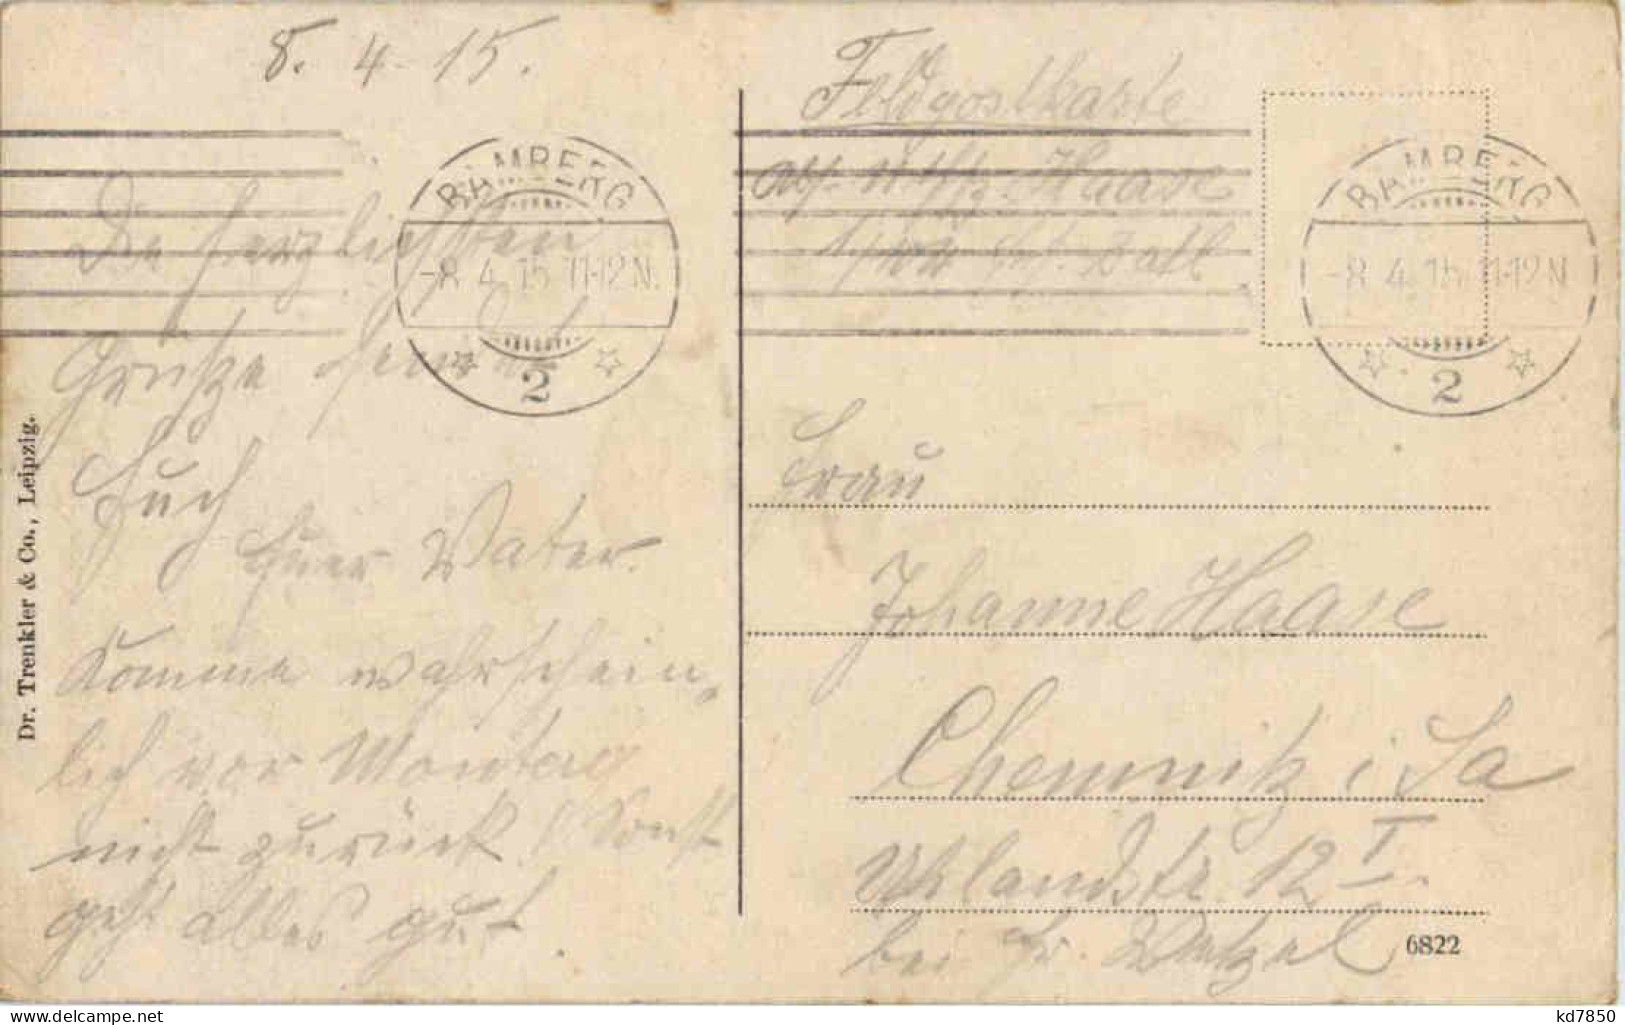 8. 4. 15.
Die herzlichsten
Grüße sendet
Euch
Euer Vater.
Komme wahrschein-
lich vor Montag
nicht zurück! Sonst
geht alles gut.
Dr. Trenkler & Co., Leipzig.
BAMBERG
-8.4.15 11-12 N.
2
Feldpostkarte
Haase
BAMBERG
-8.4.15 11-12 N
2
Frau
Johanne Haase
Chemnitz i. Sa
Uhlandstr. 12 I.
bei Fr. Wetzel
6822
kd7850